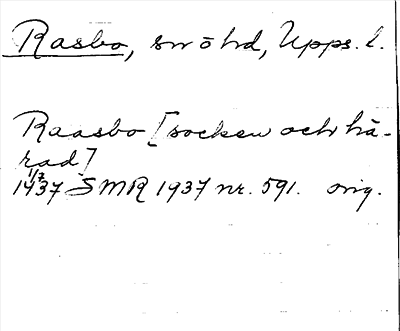 Rasbo, sn o hd, Upps. l.
Raasbo [socken och hä-
rad]
1/7
1437 SMR 1937 nr. 591. orig.